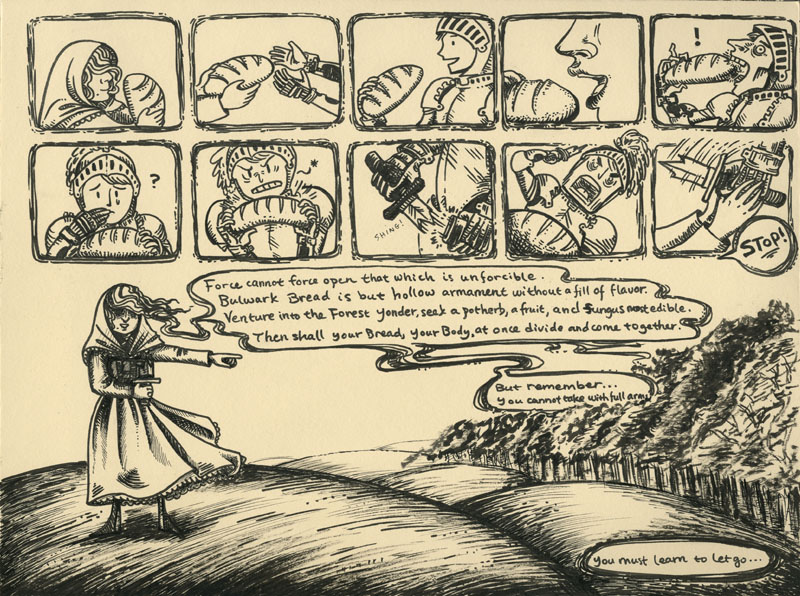 !
?
*
SHING!
STOP!
Force cannot force open that which is unforcible.
Bulwark Bread is but hollow armament without a fill of flavor.
Venture into the Forest yonder, seek a potherb, a fruit, and Fungus most edible.
Then shall your Bread, your Body, at once divide and come together.
But remember...
You cannot take with full arms
You must learn to let go...